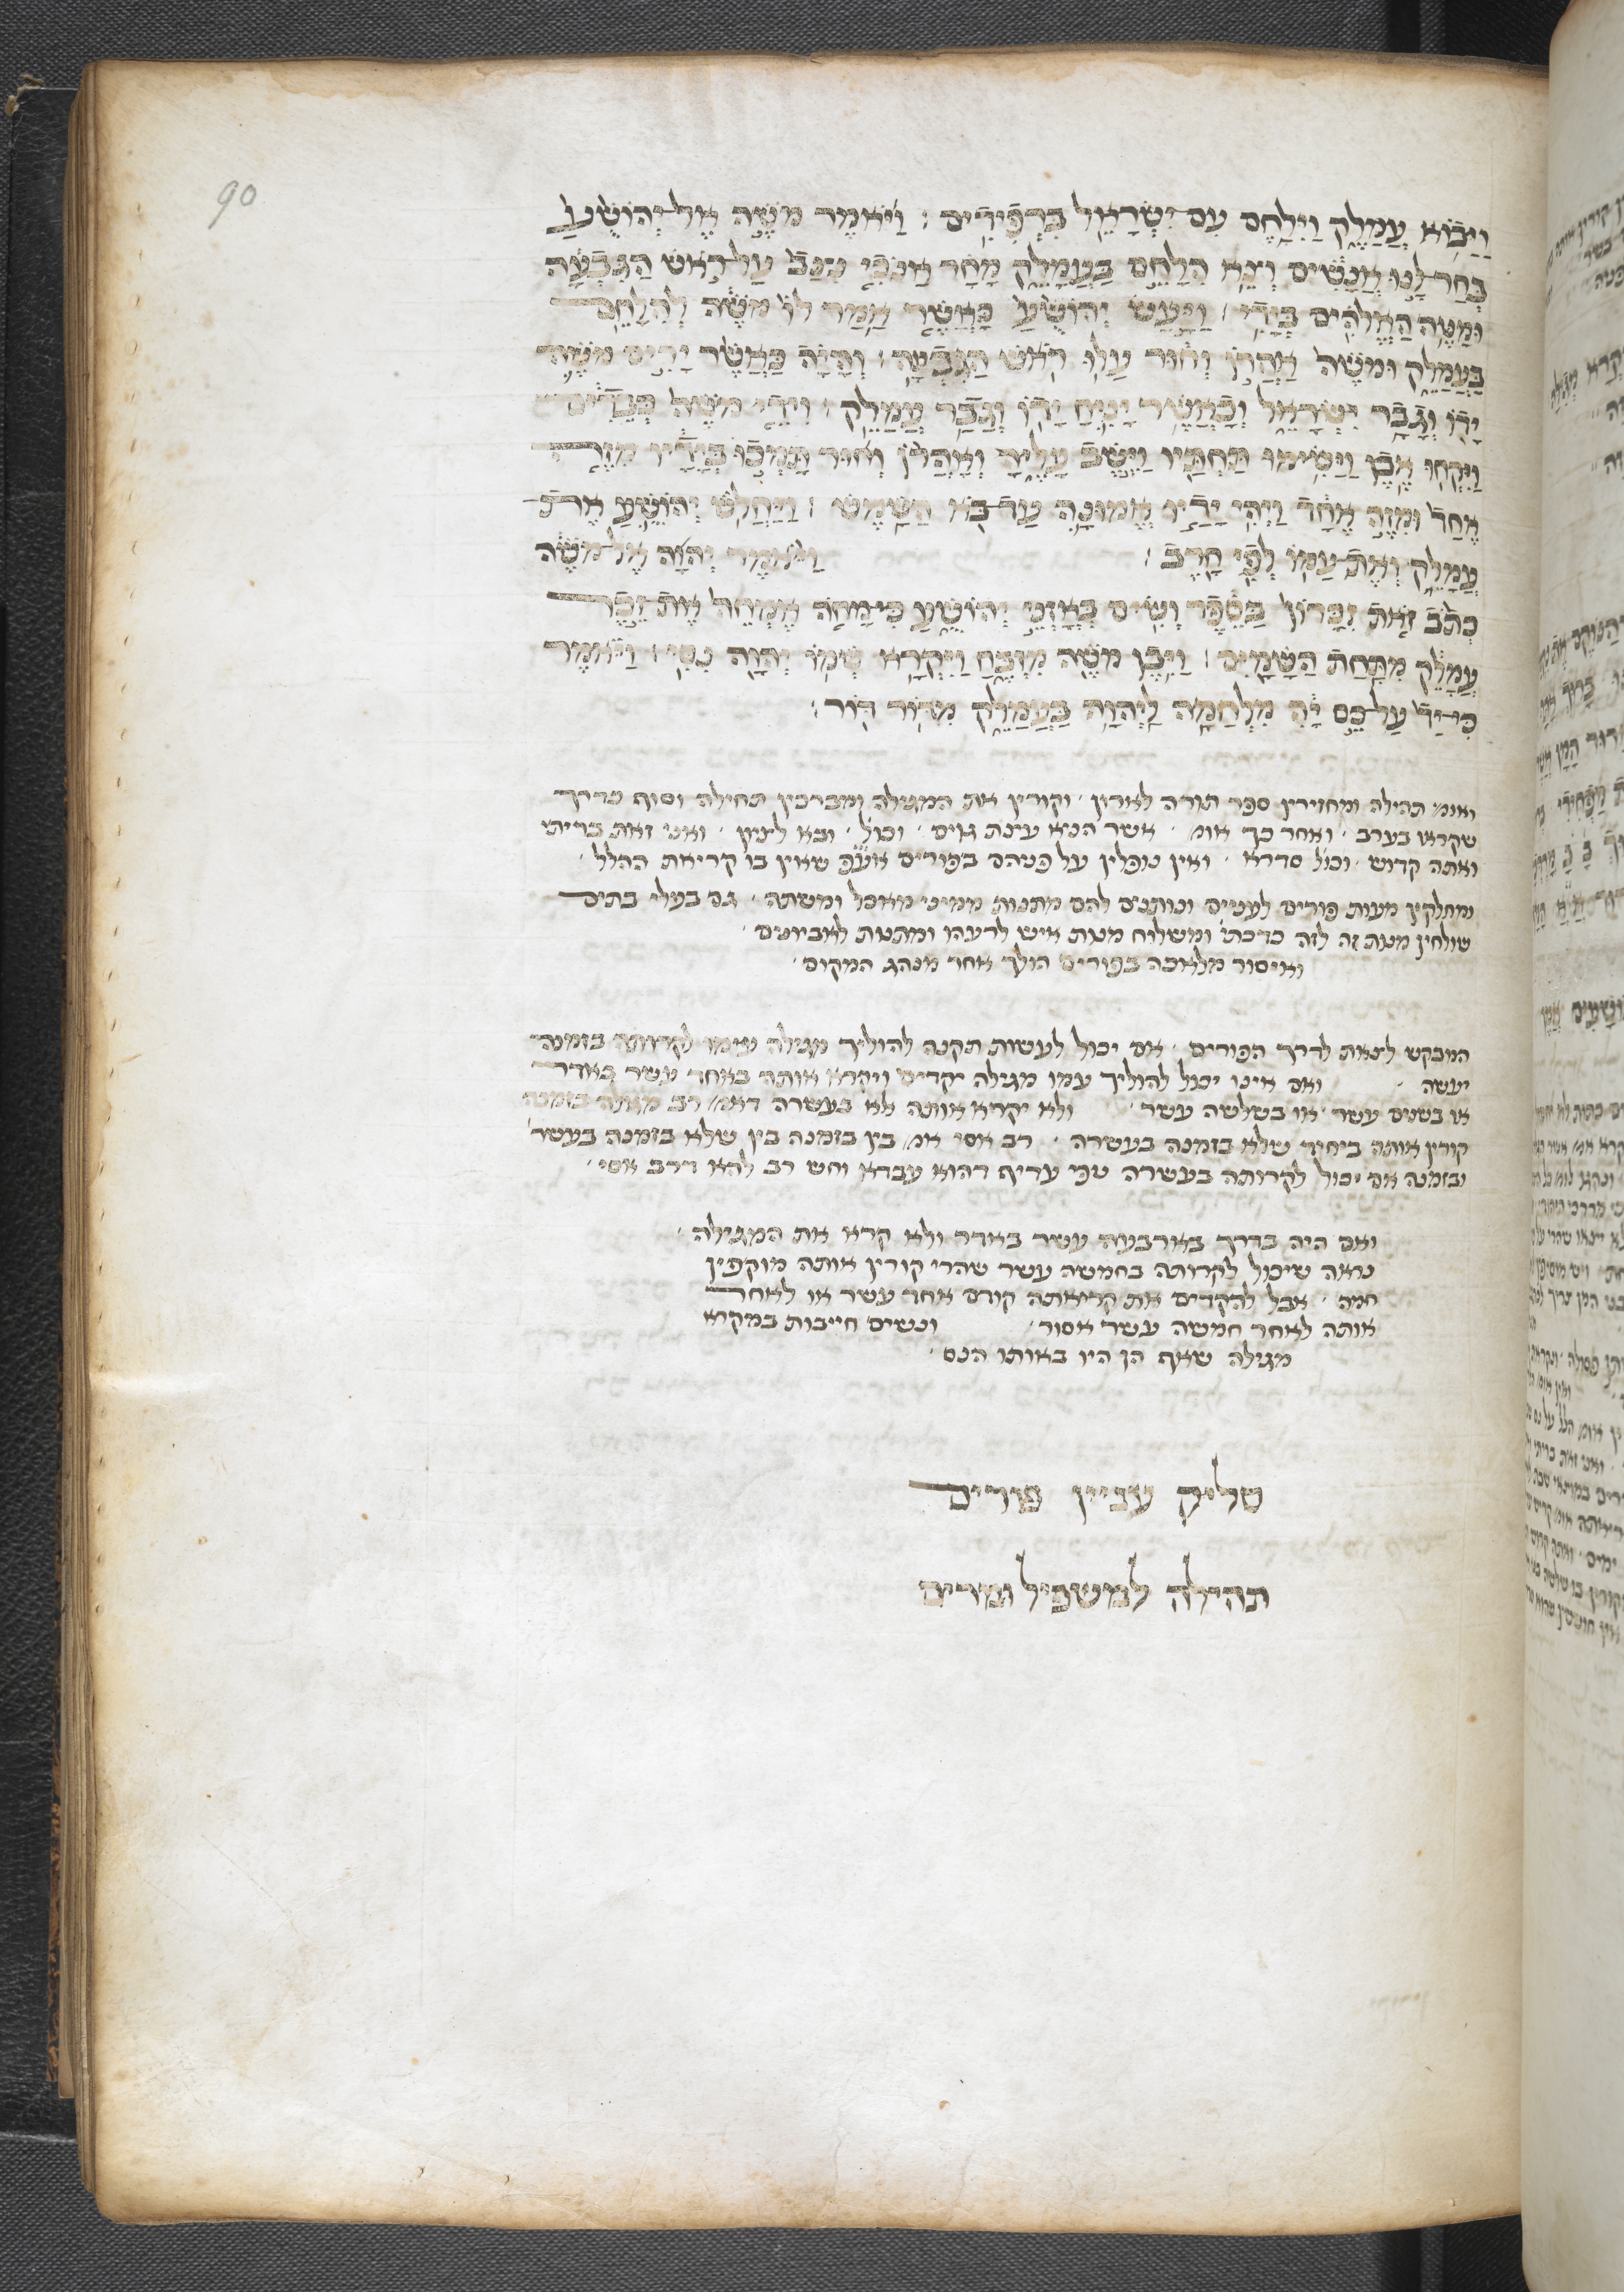 90
וַיָּבֹא עֲמָלֵק וַיִּלָּחֶם עִם יִשְׂרָאֵל בִּרְפִידִים׃ וַיֹּאמֶר מֹשֶׁה אֶל יְהוֹשֻׁעַ
בְּחַר לָנוּ אֲנָשִׁים וְצֵא הִלָּחֵם בַּעֲמָלֵק מָחָר אָנֹכִי נִצָּב עַל רֹאשׁ הַגִּבְעָה
וּמַטֵּה הָאֱלֹהִים בְּיָדִי׃ וַיַּעַשׂ יְהוֹשֻׁעַ כַּאֲשֶׁר אָמַר לוֹ מֹשֶׁה לְהִלָּחֵם
בַּעֲמָלֵק וּמֹשֶׁה אַהֲרֹן וְחוּר עָלוּ רֹאשׁ הַגִּבְעָה׃ וְהָיָה כַּאֲשֶׁר יָרִים מֹשֶׁה
יָדוֹ וְגָבַר יִשְׂרָאֵל וְכַאֲשֶׁר יָנִיחַ יָדוֹ וְגָבַר עֲמָלֵק׃ וִידֵי מֹשֶׁה כְּבֵדִים
וַיִּקְחוּ אֶבֶן וַיָּשִׂימוּ תַחְתָּיו וַיֵּשֶׁב עָלֶיהָ וְאַהֲרֹן וְחוּר תָּמְכוּ בְיָדָיו מִזֶּה
אֶחָד וּמִזֶּה אֶחָד וַיְהִי יָדָיו אֱמוּנָה עַד בֹּא הַשָּׁמֶשׁ׃ וַיַּחֲלֹשׁ יְהוֹשֻׁעַ אֶת
עֲמָלֵק וְאֶת עַמּוֹ לְפִי חָרֶב׃ וַיֹּאמֶר יְהוָה אֶל מֹשֶׁה
כְּתֹב זֹאת זִכָּרוֹן בַּסֵּפֶר וְשִׂים בְּאָזְנֵי יְהוֹשֻׁעַ כִּי מָחֹה אֶמְחֶה אֶת זֵכֶר
עֲמָלֵק מִתַּחַת הַשָּׁמָיִם׃ וַיִּבֶן מֹשֶׁה מִזְבֵּחַ וַיִּקְרָא שְׁמוֹ יְהוָה נִסִּי׃ וַיֹּאמֶר
כִּי יָד עַל כֵּס יָהּ מִלְחָמָה לַיהוָה בַּעֲמָלֵק מִדּוֹר דּוֹר׃
ואומ׳ תהילה ומחזירין ספר תורה לארון׳ וקורין את המגילה ומברכין תחילה וסוף כדרך
שקראו בערב׳ ואחר כך אומ׳ אשר הניא עצת גוים׳ וכול׳ ובא לציון׳ ואני זאת בריתי
ואתה קדוש׳ וכול סדרא׳ ואין נופלין על פניהם בפורים אע״פ שאין בו קריאת ההלל׳
ומחלקין מעות פורים לעניים ונותנים להם מתנות ממיני מאכל ומשתה׳ גם בעלי בתים
שולחין מנות זה לזה כדכת׳ ומשלוח מנות איש לרעהו ומתנות לאביונים׳
ואיסור מלאכה בפורים הולך אחר מנהג המקום׳
המבקש לצאת לדרך הפורים׳ אם יכול לעשות תקנה להוליך מגילה עימו לקרותה בזמנה
יעשה׳ ואם אינו יכול להוליך עמו מגילה יקדים ויקרא אותה באחד עשר באדר
או בשנים עשר׳ או בשלשה עשר׳ ולא יקרא אותה אלא בעשרה דאמ׳ רב מגילה בזמנה
קורין אותה ביחיד שלא בזמנה בעשרה׳ רב אסי אמ׳ בין בזמנה בין שלא בזמנה בעשר׳
ובזמנה אם יכול לקרותה בעשרה טפי עדיף דהוא עבדא וחש רב להא דרב אסי׳
ואם היה בדרך בארבעה עשר באדר ולא קרא את המגילה׳
נראה שיכול לקרותה בחמשה עשר שהרי קורין אותה מוקפין
חמה׳ אבל להקדים את קריאתה קודם אחד עשר או לאחר
אותה לאחר חמשה עשר אסור׳ ונשים חייבות במקרא
מגילה שאף הן היו באותו הנס׳
סליק עניין פורים
תהילה למשפיל ומרים